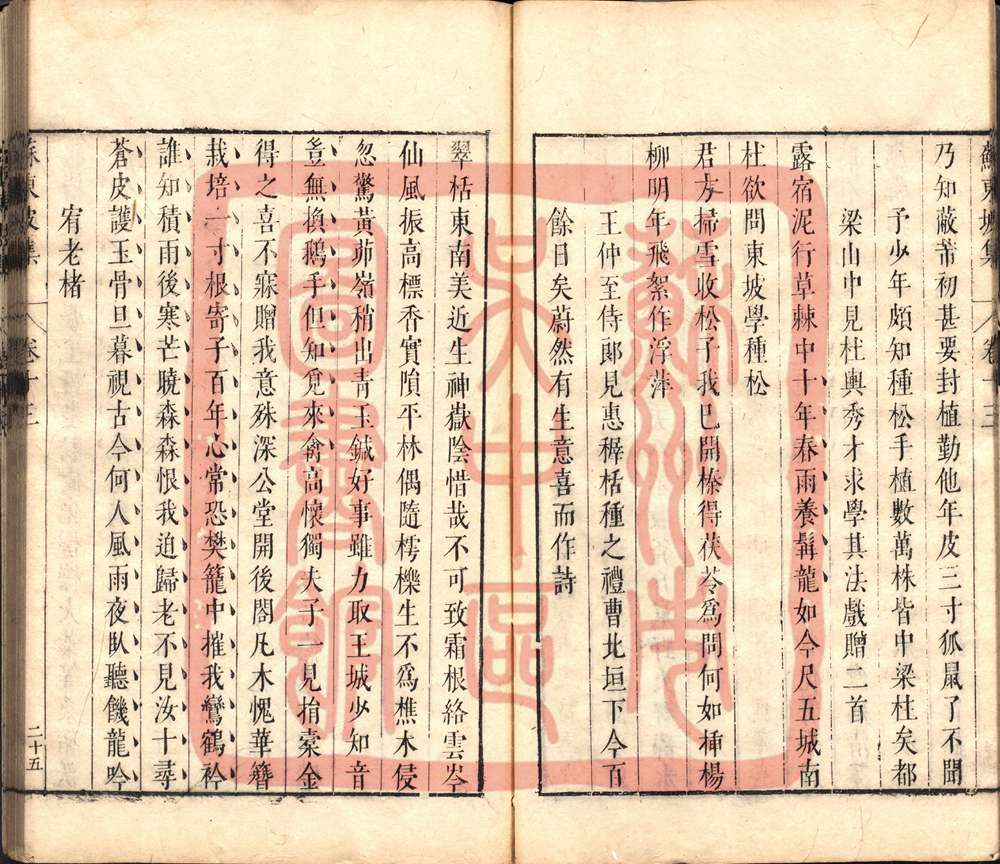 蘇東坡集 卷十三
乃知蔽芾初甚要封植勤他年皮三寸狐鼠了不聞
予少年頗知種松手植數萬株皆中梁柱矣都
梁山中見杜輿秀才求學其法戲贈二首
露宿泥行草棘中十年春雨養髯龍如今尺五城南
杜欲問東坡學種松
君方掃雪收松子我已開榛得茯苓爲問何如揷楊
柳明年飛絮作浮萍
王仲至侍郞見惠穉栝種之禮曹北垣下今百
餘日矣蔚然有生意喜而作詩
翠栝東南美近生神嶽陰惜哉不可致霜根絡雲岑
仙風振高標香實隕平林偶隨樗櫟生不爲樵木侵
忽驚黃茆嶺稍出靑玉鍼好事雖力取王城少知音
豈無換鵝手但知覓來禽高懷獨夫子一見捐橐金
得之喜不寐贈我意殊深公堂開後閤凡木愧華簪
栽培一寸根寄子百年心常恐樊籠中摧我鸞鶴衿
誰知積雨後寒芒曉森森恨我迫歸老不見汝十尋
蒼皮護玉骨旦暮視古今何人風雨夜臥聽饑龍吟
宥老楮
蘇東坡集 卷十三 二十五
蘇州市吳中區圖書館